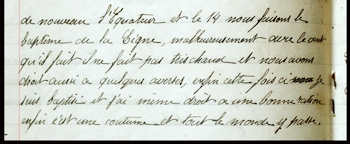 de nouveau l'Equateur et le 14 nous faisons le
baptème de la Ligne, malheureusement avec le vent
qu'il fait il ne fait pas très chaud et nous avons
droit aussi a quelques averses, enfin cette fois ci je
suis baptisé et j'ai meme droit a une bonne ration
enfin c'est une coutume et tout le monde y passe.